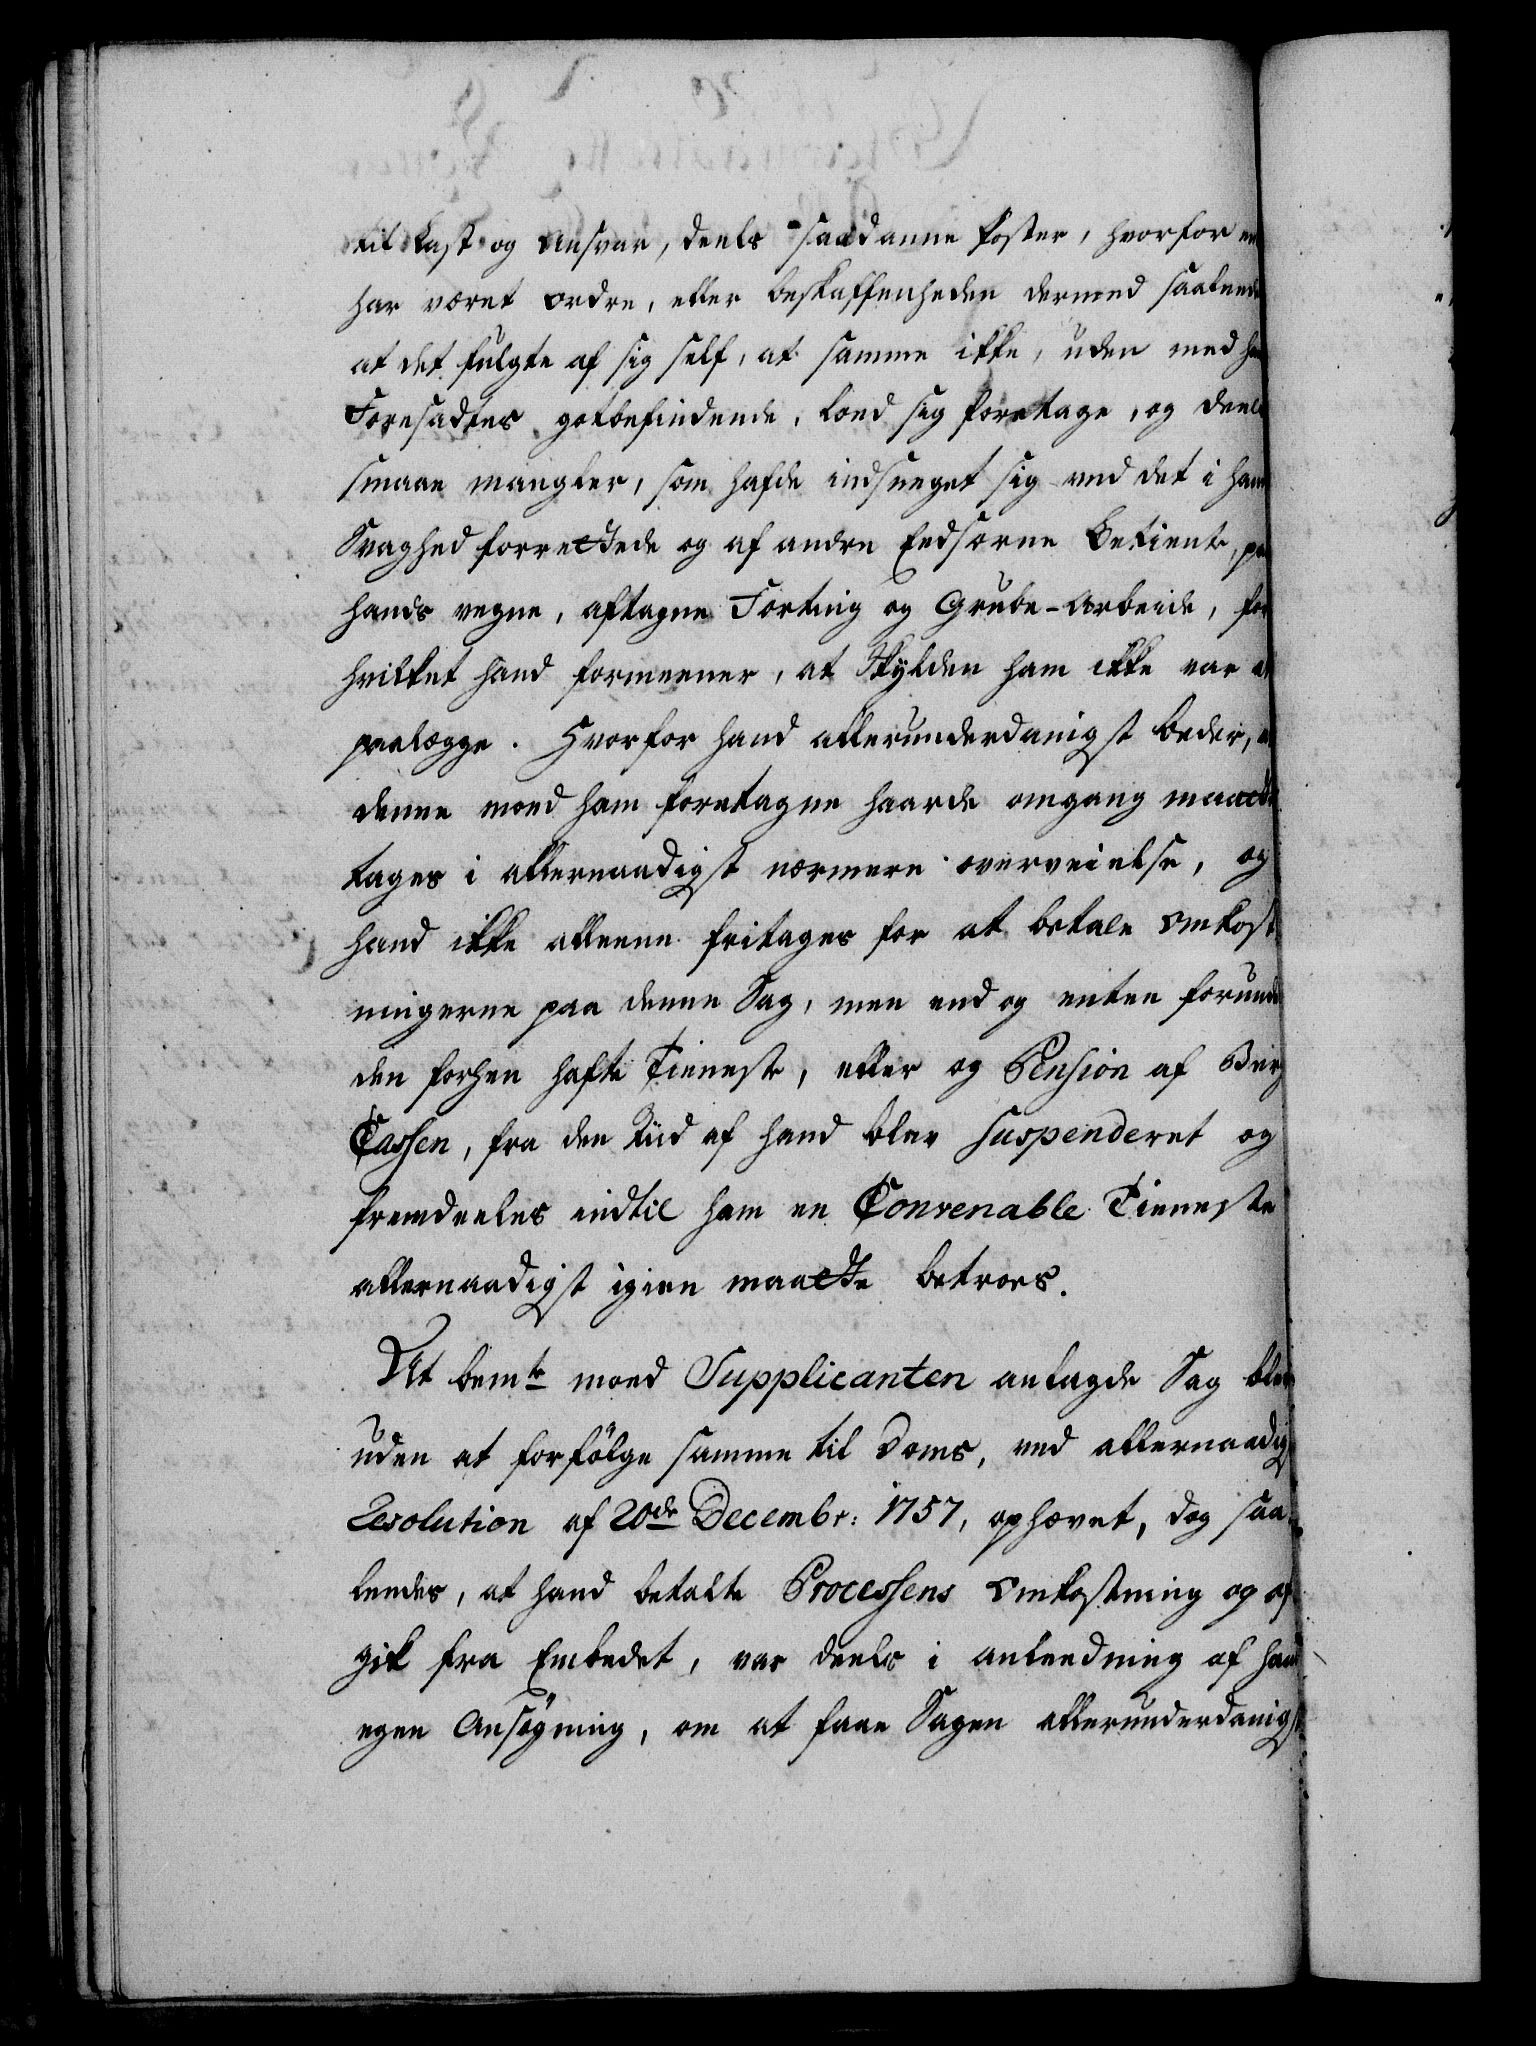 til Last og Ansvar, deels saadanne Poster, hvorfor
har været ordre, eller beskaffenheden dermed saalende
at det fulgte af sig self, at samme ikke, uden med
Foresadtes gotbefindende, loed sig foretage, og deels
smaae mangler, som hafde indsneget sig ved det i hans
Svaghed forrettede og af andre Eedsorne Betiente, paa
hands vegne, aftagne Forting og Grube-Arbeide, for
hvilket hand formeener, at Skylden ham ikke var at
paalægge. Hvorfor hand allerunderdanigst beder, at
denne moed ham foretagne haarde omgang maatte
tages i allernaadigst nærmere overveielse, og
hand ikke alleene fritages for at betale Omkost
ningerne paa denne Sag, men end og enten forunde
den forhen hafte Tieneste, eller og Pension af Berg
Cassen, fra den Tiid af hand blev suspenderet og
fremdeeles indtil ham en Convenable Tieneste
allernaadigst igien maatte betroes.
At bemte moed Supplicanten anlagde Sag blev
uden at forfölge samme til Doms, ved allernaadigst
Resolution af 20de Decembr: 1757, ophævet, dog saa-
leedes, at hand betalte Processens Omkostning og af
gik fra Embedet, var deels i anleedning af hans
egen Ansögning, om at faae Sagen allerunderdanigst